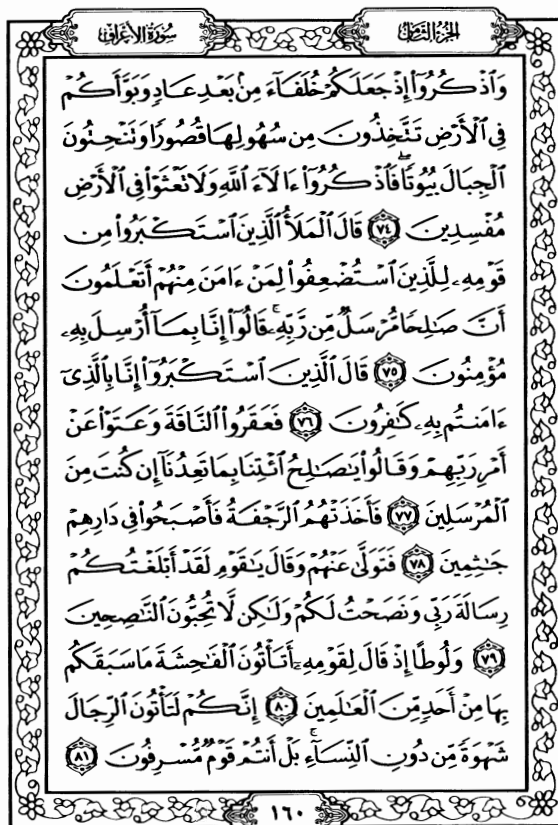 سُورَةُ الأَعْرَافِ
الجُزْءُ الثَّامِنُ
وَٱذْكُرُوٓا۟ إِذْ جَعَلَكُمْ خُلَفَآءَ مِنۢ بَعْدِ عَادٍ وَبَوَّأَكُمْ
فِى ٱلْأَرْضِ تَتَّخِذُونَ مِن سُهُولِهَا قُصُورًا وَتَنْحِتُونَ
ٱلْجِبَالَ بُيُوتًا ۖ فَٱذْكُرُوٓا۟ ءَالَآءَ ٱللَّهِ وَلَا تَعْثَوْا۟ فِى ٱلْأَرْضِ
مُفْسِدِينَ ﴿٧٤﴾ قَالَ ٱلْمَلَأُ ٱلَّذِينَ ٱسْتَكْبَرُوا۟ مِن
قَوْمِهِۦ لِلَّذِينَ ٱسْتُضْعِفُوا۟ لِمَنْ ءَامَنَ مِنْهُمْ أَتَعْلَمُونَ
أَنَّ صَٰلِحًا مُّرْسَلٌ مِّن رَّبِّهِۦ ۚ قَالُوٓا۟ إِنَّا بِمَآ أُرْسِلَ بِهِۦ
مُؤْمِنُونَ ﴿٧٥﴾ قَالَ ٱلَّذِينَ ٱسْتَكْبَرُوٓا۟ إِنَّا بِٱلَّذِىٓ
ءَامَنتُم بِهِۦ كَٰفِرُونَ ﴿٧٦﴾ فَعَقَرُوا۟ ٱلنَّاقَةَ وَعَتَوْا۟ عَنْ
أَمْرِ رَبِّهِمْ وَقَالُوا۟ يَٰصَٰلِحُ ٱئْتِنَا بِمَا تَعِدُنَآ إِن كُنتَ مِنَ
ٱلْمُرْسَلِينَ ﴿٧٧﴾ فَأَخَذَتْهُمُ ٱلرَّجْفَةُ فَأَصْبَحُوا۟ فِى دَارِهِمْ
جَٰثِمِينَ ﴿٧٨﴾ فَتَوَلَّىٰ عَنْهُمْ وَقَالَ يَٰقَوْمِ لَقَدْ أَبْلَغْتُكُمْ
رِسَالَةَ رَبِّى وَنَصَحْتُ لَكُمْ وَلَٰكِن لَّا تُحِبُّونَ ٱلنَّٰصِحِينَ
﴿٧٩﴾ وَلُوطًا إِذْ قَالَ لِقَوْمِهِۦٓ أَتَأْتُونَ ٱلْفَٰحِشَةَ مَا سَبَقَكُم
بِهَا مِنْ أَحَدٍ مِّنَ ٱلْعَٰلَمِينَ ﴿٨٠﴾ إِنَّكُمْ لَتَأْتُونَ ٱلرِّجَالَ
شَهْوَةً مِّن دُونِ ٱلنِّسَآءِ ۚ بَلْ أَنتُمْ قَوْمٌ مُّسْرِفُونَ ﴿٨١﴾
١٦٠